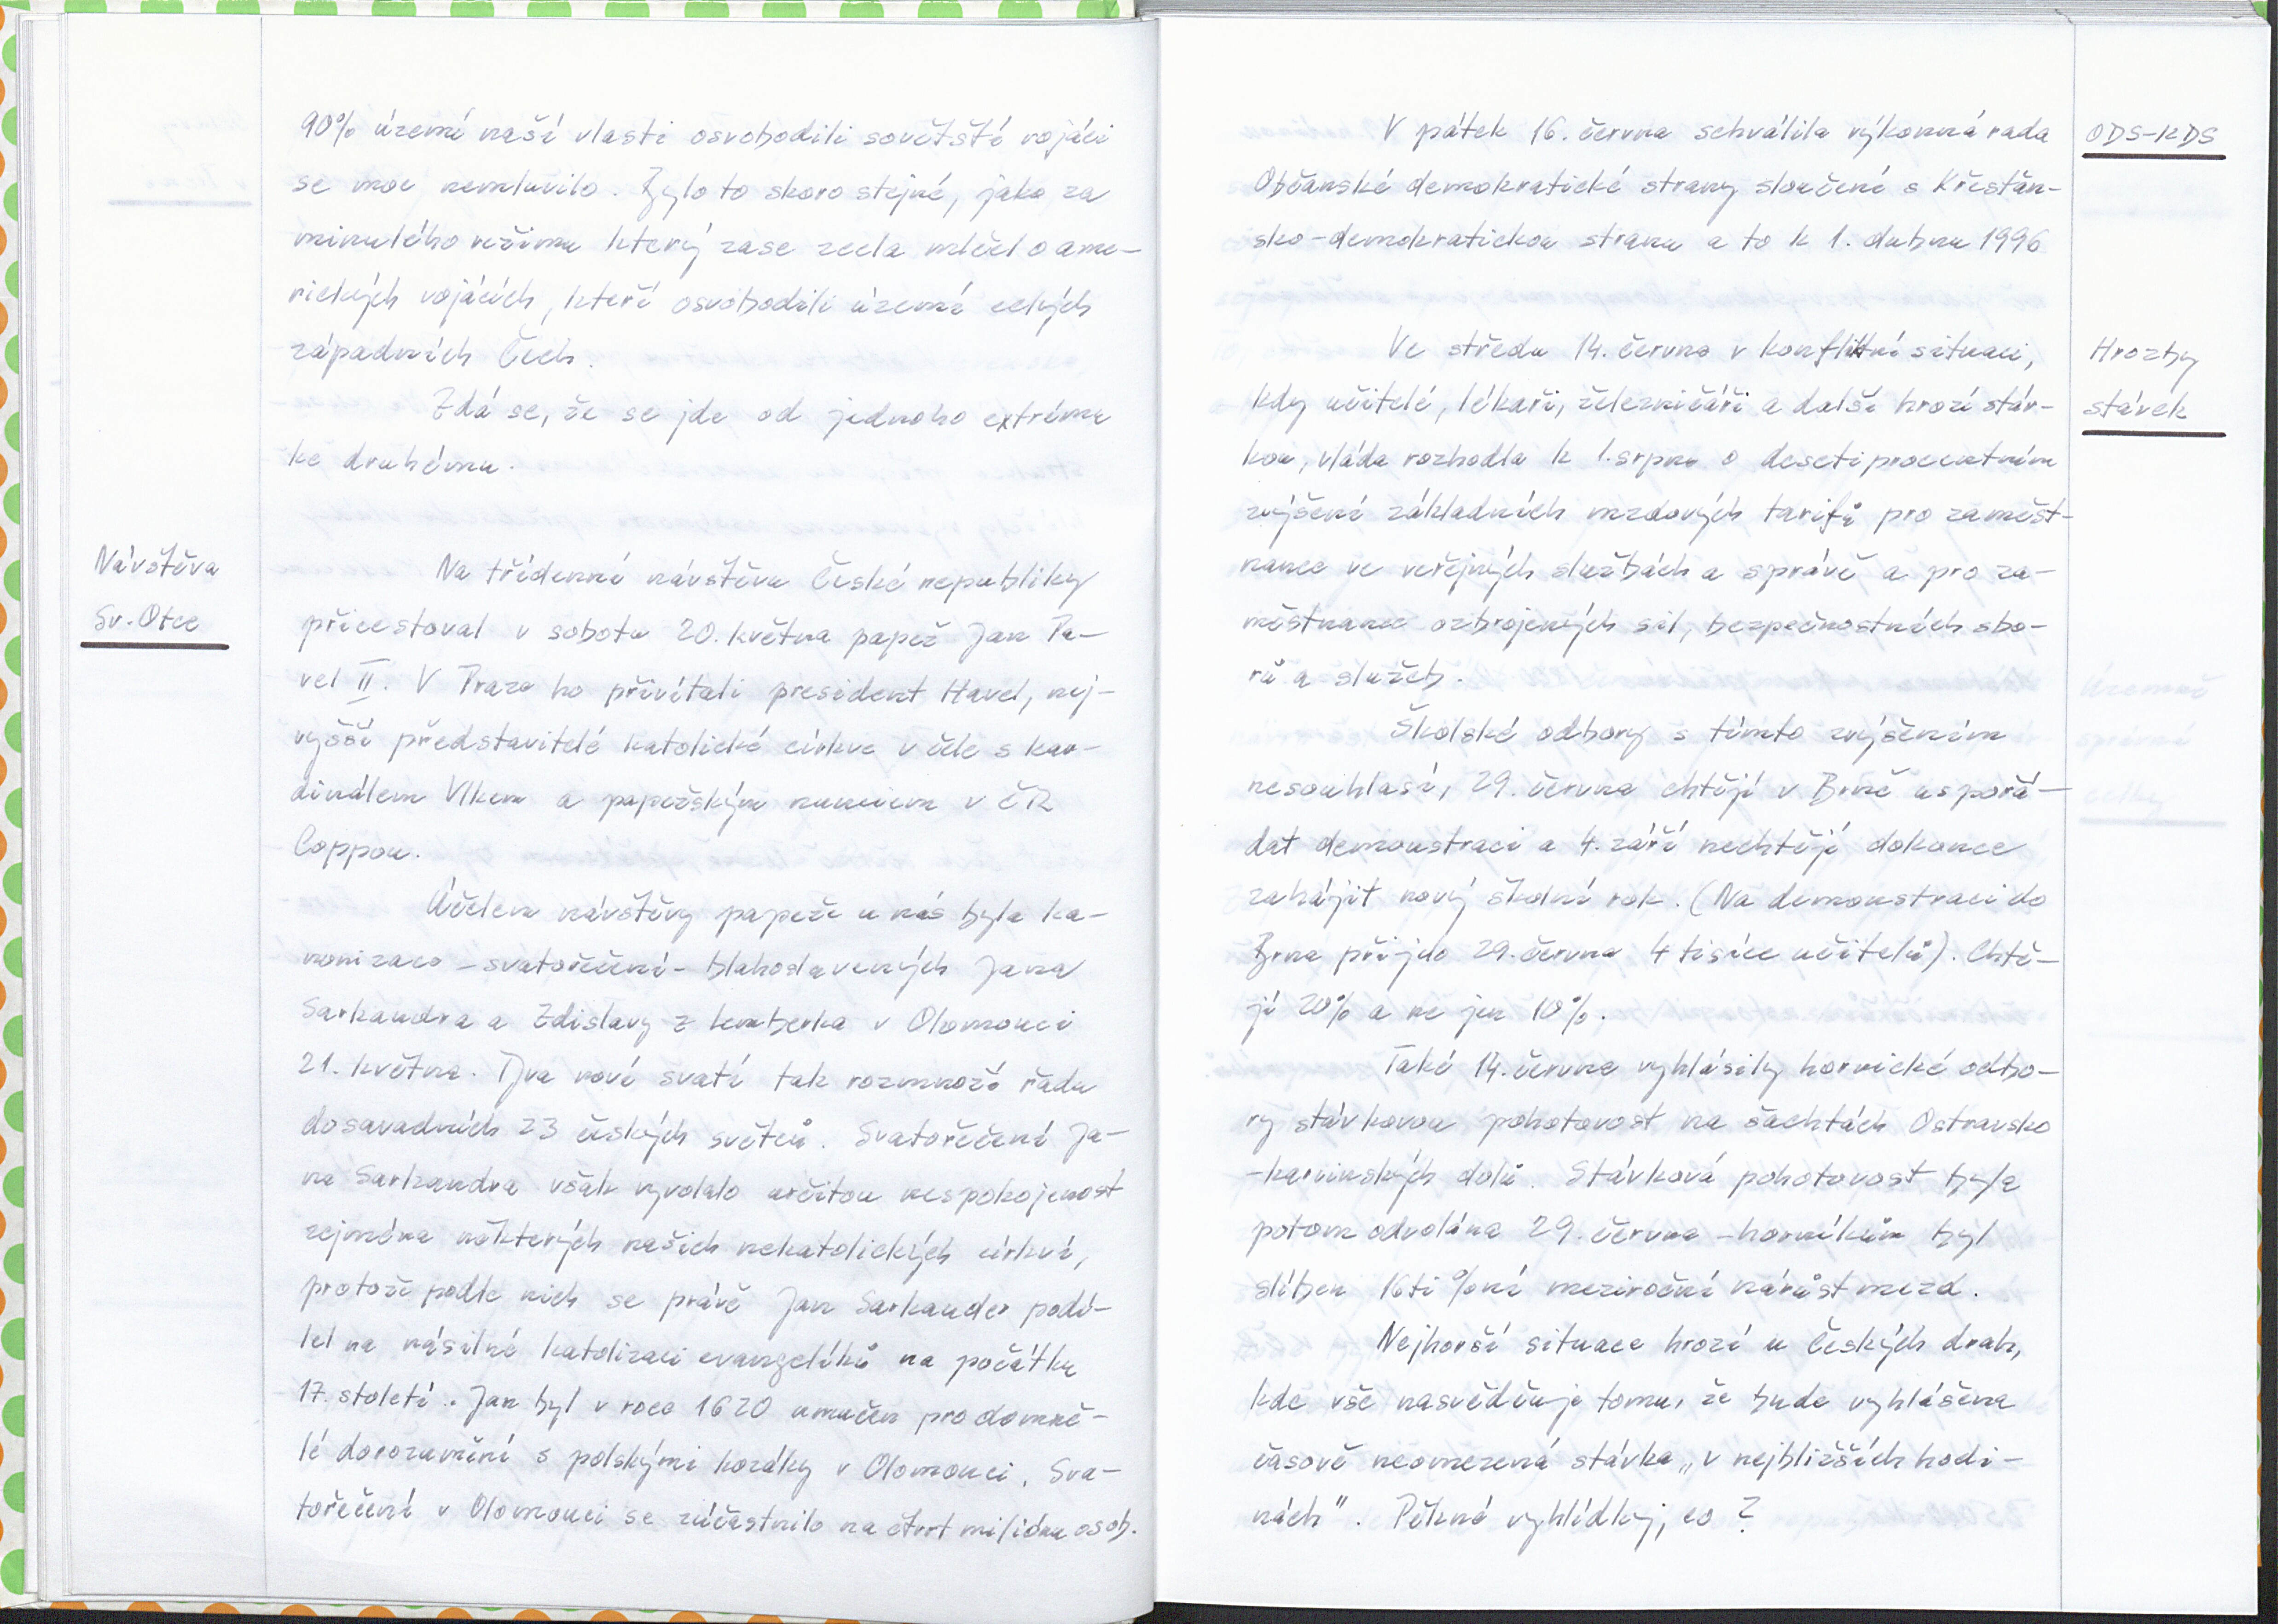 90% území naší vlasti osvobodili sovětští vojáci
se moc nemluvilo. Bylo to skoro stejné, jako za
minulého režimu který zase zcela mlčel o ame-
rických vojácích, kteří osvobodili území celých
západních Čech.
Zdá se, že se jde od jednoho extrému
ke druhému.
Návštěva
Sv. Otce
Na třídenní návštěvu České republiky
přicestoval v sobotu 20. května papež Jan Pa-
vel II. V Praze ho přivítali president Havel, nej-
vyšší představitelé katolické církve v čele s kar-
dinálem Vlkem a papežským nunciem v ČR
Coppou.
Účelem návštěvy papeže u nás byla ka-
nonizace - svatořečení - blahoslavených Jana
Sarkandra a Zdislavy z Lemberka v Olomouci
21. května. Dva noví svatí tak rozmnoží řadu
dosavadních 23 českých světců. Svatořečení Ja-
na Sarkandra však vyvolalo určitou nespokojenost
zejména některých našich nekatolických církví,
protože podle nich se právě Jan Sarkander podí-
lel na násilné katolizaci evangelíků na počátku
17. století. Jan byl v roce 1620 umučen pro domně-
lé dorozumění s polskými kozáky v Olomouci. Sva-
tořečení v Olomouci se zúčastnilo na čtvrt miliónu osob.
V pátek 16. června schválila výkonná rada
Občanské demokratické strany sloučení s Křesťan-
sko-demokratickou stranu a to k 1. dubnu 1996
ODS-KDS
Ve středu 14. června v konfliktní situaci,
kdy učitelé, lékaři, železničáři a další hrozí stáv-
kou, vláda rozhodla k 1. srpnu o desetiprocentním
zvýšení základních mzdových tarifů pro zaměst-
nance ve veřejných službách a správě a pro za-
městnance ozbrojených sil, bezpečnostních sbo-
rů a služeb.
Hrozby
stávek
Školské odbory s tímto zvýšením
nesouhlasí, 29. června chtějí v Brně uspořá-
dat demonstraci a 4. září nechtějí dokonce
zahájit nový školní rok. (Na demonstraci do
Brna přijdo 29. června 4 tisíce učitelů). Chtě-
jí 20% a ne jen 10%.
Také 14. června vyhlásily hornické odbo-
ry stávkovou pohotovost na šachtách Ostravsko
-karvinských dolů. Stávková pohotovost byla
potom odvolána 29. června - horníkům byl
slíben 16ti %ní meziroční nárůst mezd.
Nejhorší situace hrozí u Českých drah,
kde vše nasvědčuje tomu, že bude vyhlášena
časově neomezená stávka „v nejbližších hodi-
nách". Pěkné vyhlídky, co?